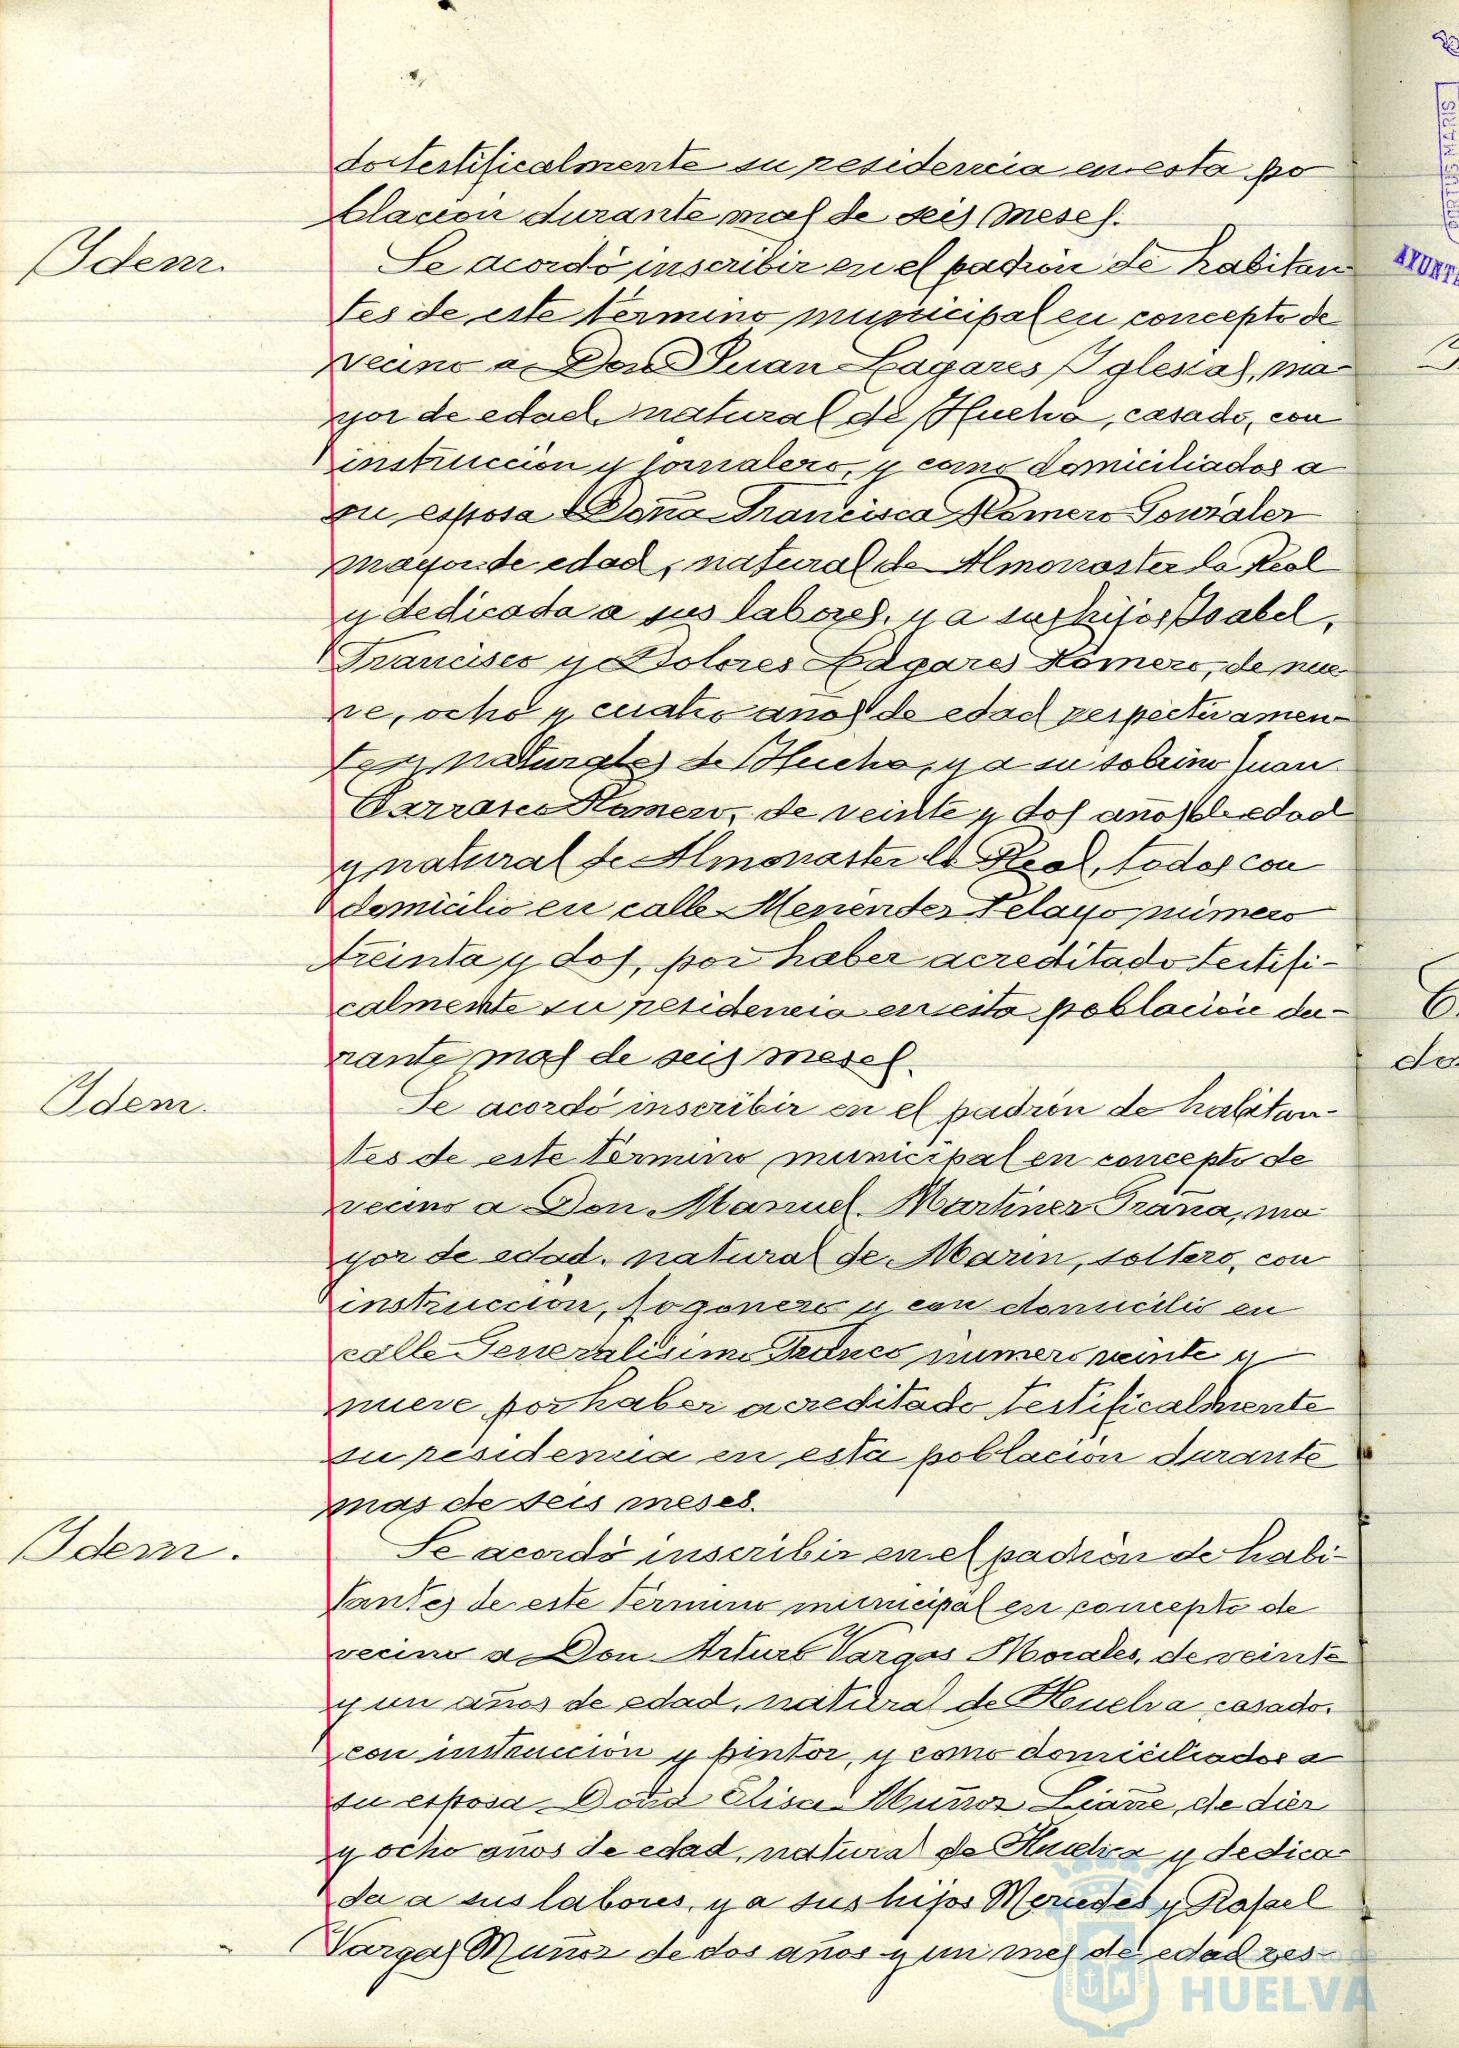 do testificalmente su residencia en esta po
blacion durante mas de seis meses.
Idem.
Se acordó inscribir en el padrón de habitan
tes de este término municipal en concepto de
vecino a Don Juan Lagares Iglesias, ma-
yor de edad, natural de Huelva, casado, con
instrucción y jornalero, y como domiciliados a
su esposa Doña Francisca Romero Gonzalez
mayor de edad, natural de Almonaster la Real
y dedicada a sus labores, y a sus hijos Isabel,
Francisco y Dolores Lagares Romero, de nue
ve, ocho y cuatro años de edad respectivamen-
te y naturales de Huelva, y a su sobrino Juan
Carrasco Romero, de veinte y dos años de edad
y natural de Almonaster la Real, todos con
domicilio en calle Menendez Pelayo, número
treinta y dos, por haber acreditado testifi-
calmente su residencia en esta población du-
rante mas de seis meses.
Idem.
Se acordó inscribir en el padrón de habitan-
tes de este término municipal en concepto de
vecino a Don Manuel Martinez Graña, ma
yor de edad, natural de Marin, soltero, con
instrucción, fogonero y con domicilio en
calle Generalisimo Franco número veinte y
nueve por haber acreditado testificalmente
su residencia en esta poblacion durante
mas de seis meses.
Idem.
Se acordó inscribir en el padrón de habi-
tantes de este término municipal en concepto de
vecino a Don Arturo Vargas Morales, de veinte
y un años de edad, natural de Huelva, casado,
con instrucción y pintor, y como domiciliados a
su esposa Doña Elisa Muñoz Liañe, de diez
y ocho años de edad, natural de Huelva y dedica-
da a sus labores, y a sus hijos Mercedes y Rafael
Vargas Muñoz de dos años y un mes de edad res-
HUELVA